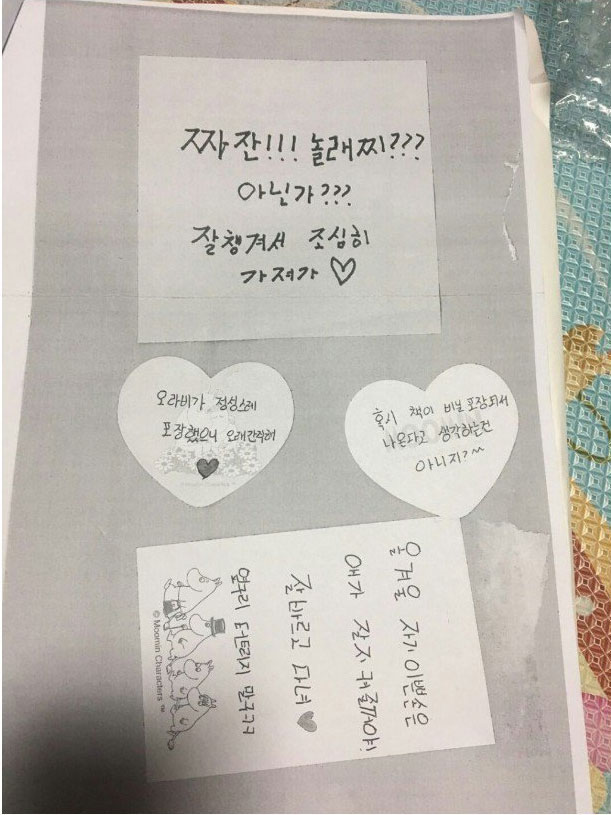 짜잔!!! 놀래찌???
아닌가???
잘챙겨서 조심히
가져가 ♡
오라비가 정성스레
포장했으니 오래간직해
♥
혹시 책이 비닐 포장되서
나온다고 생각하는건
아니지?^^
올겨울 자기이쁜손은
얘가 잘지켜줄꺼야!
잘바르고 다녀♥
옆구리 터트리지 말구ㅋㅋ
© Moomin Characters ™